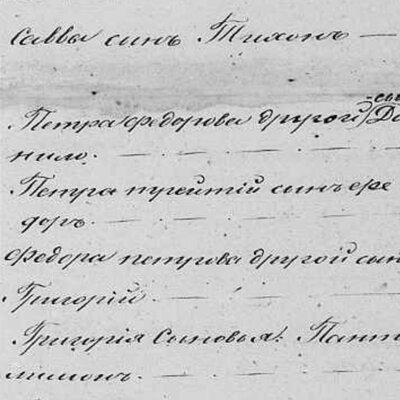 Савва сынъ Тихонъ —
Петра Федорова другой сы Да
нило. — — — —
Петра третій сынъ Фе
доръ. — — — —
Федора петрова другой сын
Григорій — — — —
Григорія Сыновья: Пант
лимонъ. — — — —